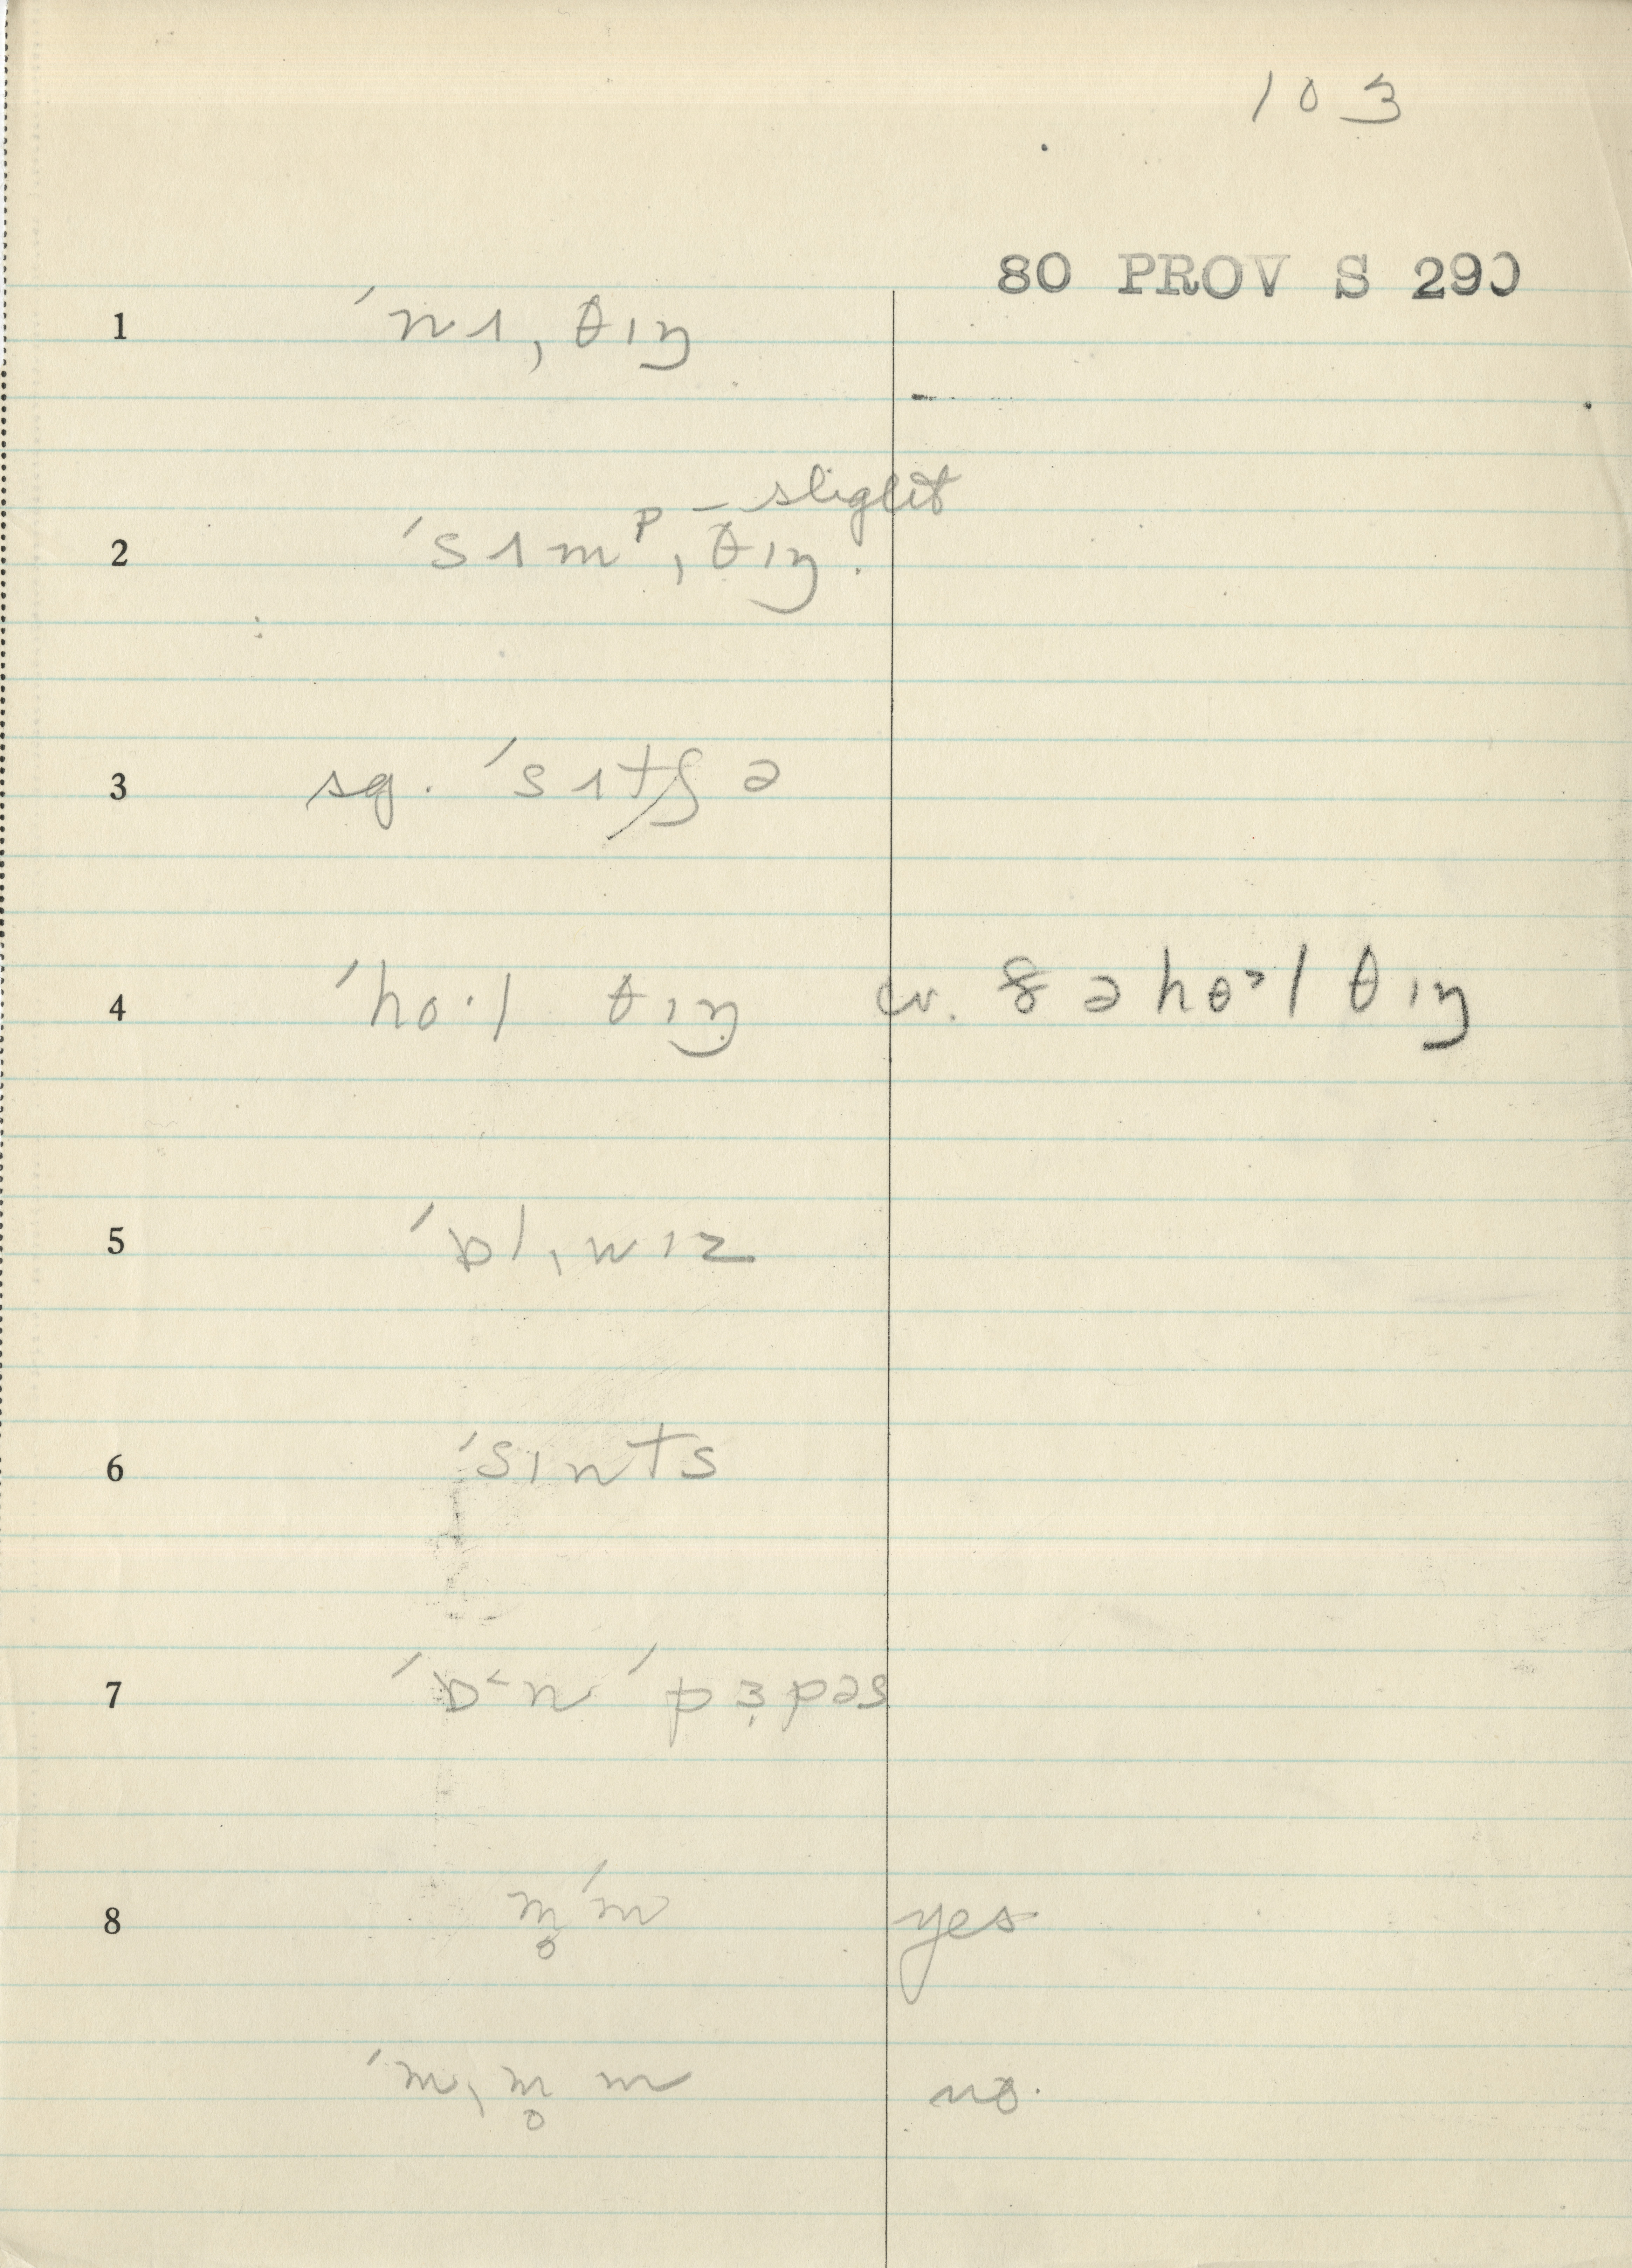 103
80 PROV S 290
1 ˈnʌˌθɪŋ
2 ˈsʌmᵖˌθɪŋ. – slight
3 sg. ˈsʌtʃə
4 ˈho·l θɪŋ cv. ðə hɵ˃l θɪŋ
5 ˈɒlˌwɪz
6 ˈsɪnts
7 ˈɒ˂n ˈpɜ̣pəs
8 m̥ˈm yes
ˈmˌm̥m no.